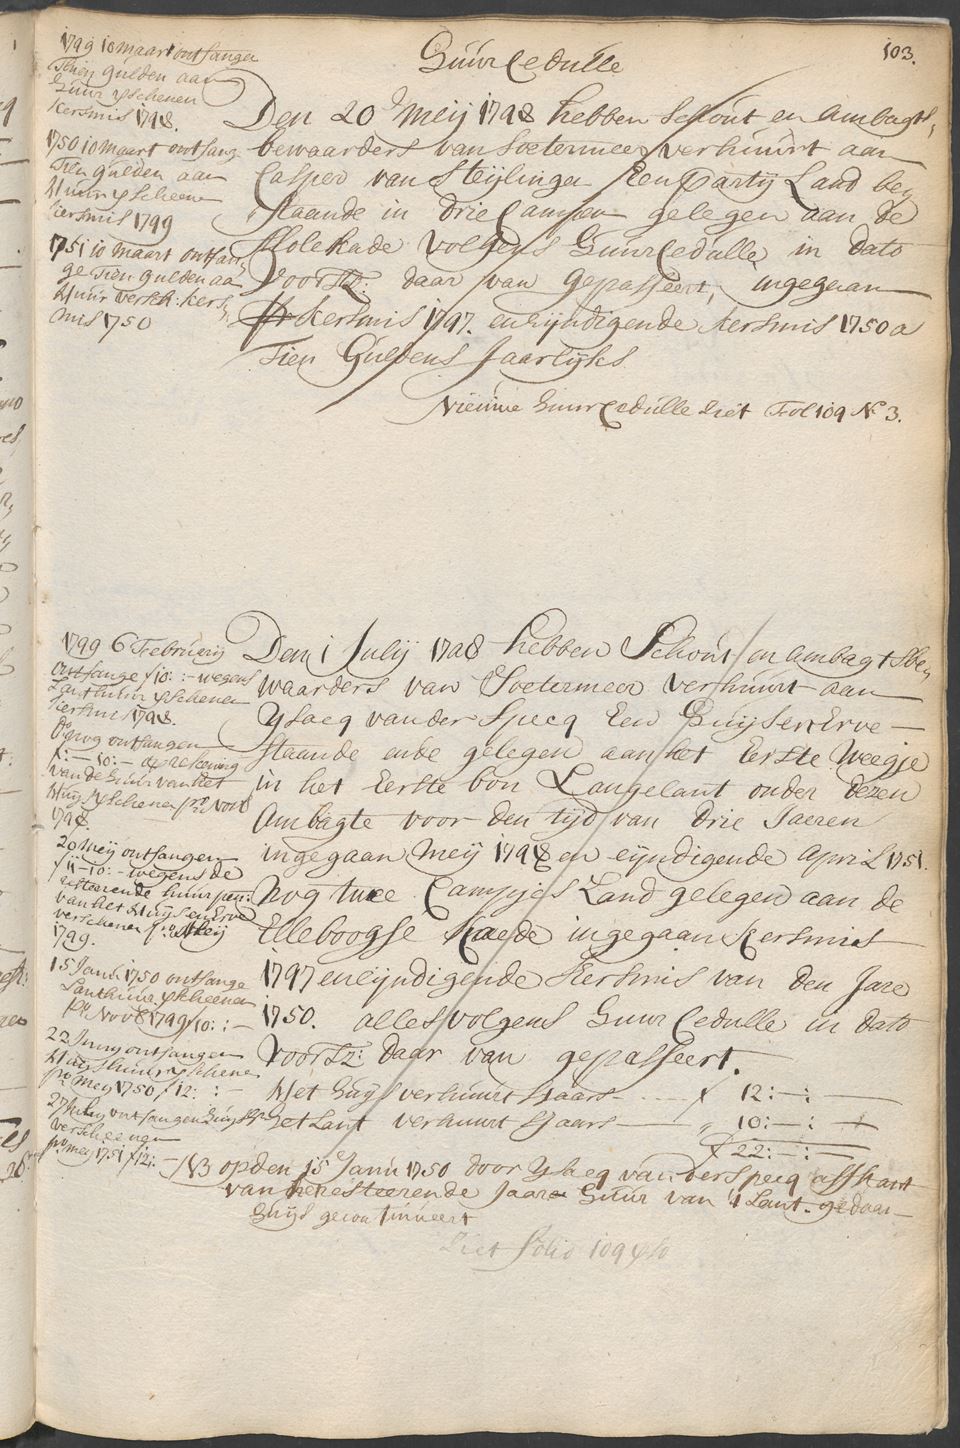 103.
Huur Cedulle
1749 10 maart ontfangen
Thien gulden aan
Huur Verschenen
Kersmis 1748.
1750 10 maart ontfang
Tien gulden aan
Huur Verscheenen
Kersmis 1749
1751 10 maart ontfan,
ge Tien gulden aa
Huur versch: Kers,
mis 1750
Den 20 Meij 1748 hebben Schout en Ambagts,
bewaarders van Soetermeer verhuurt aan
Casper van Steijlingen Een Partij Land be,
staande in drie Campen gelegen aan de
Molekade volgens Huur Cedulle in dato
voorsz: daar van gepasseert, ingegaan
Kersmis 1747. en Eijndigende Kersmis 1750 a
Tien Guldens Jaarlijks
Nieuwe Huur Cedulle ziet Fol 109 No 3.
1749 6 February
ontfange f 10: :- wegens
Lanthuur Verschenen
Kersmis 1748.
Do nog ontfangen
f: - 10: - op rekening
van de Huur van het
Huijs Verschenen pmo Novb
1748.
20 Meij ontfangen
f 11-10: - wegens de
resteerende huur pen:
van het Huijs en Erve
verschenen pmo Meij
1749.
15 Janu: 1750 ontfange
Lanthuur Verscheenen
pmo Novb 1749 f 10: : -
22 Juny ontfangen
Huijshuur Verschene
pmo Meij 1750 f 12: : -
27 July ontfangen Huijshr
verscheenen
pmo meij 1751 f 12: -
Den 1 Julij 1748 hebben Schout en Ambagtsbe,
waarders van Soetermeer verhuurt aan
Ysaeq van der Specq Een Huijs en Erve
staande ende gelegen aan het Eerste Weegje
in het Eerste bon Langelant onder dezen
Ambagte voor den tijd van drie Jaeren
ingegaan Meij 1748 en eijndigende April 1751.
Nog twee Campjes Land gelegen aan de
Elleboogse Kaede ingegaan Kersmis
1747 en eijndigende Kersmis van den Jare
1750. alles volgens Huur Cedulle in dato
voorsz: daar van gepasseert.
Het Huijs verhuurt sJaars - f 12: - : -
Het Lant verhuurt sJaars - „ 10: - : -
f 22: - : -
NB op den 15 Janu 1750 door Ysaeq van der Specq affstant
van de resteerende Jaare Huur van 't Lant gedaan
Huijs gecontinueert
Ziet folio 109